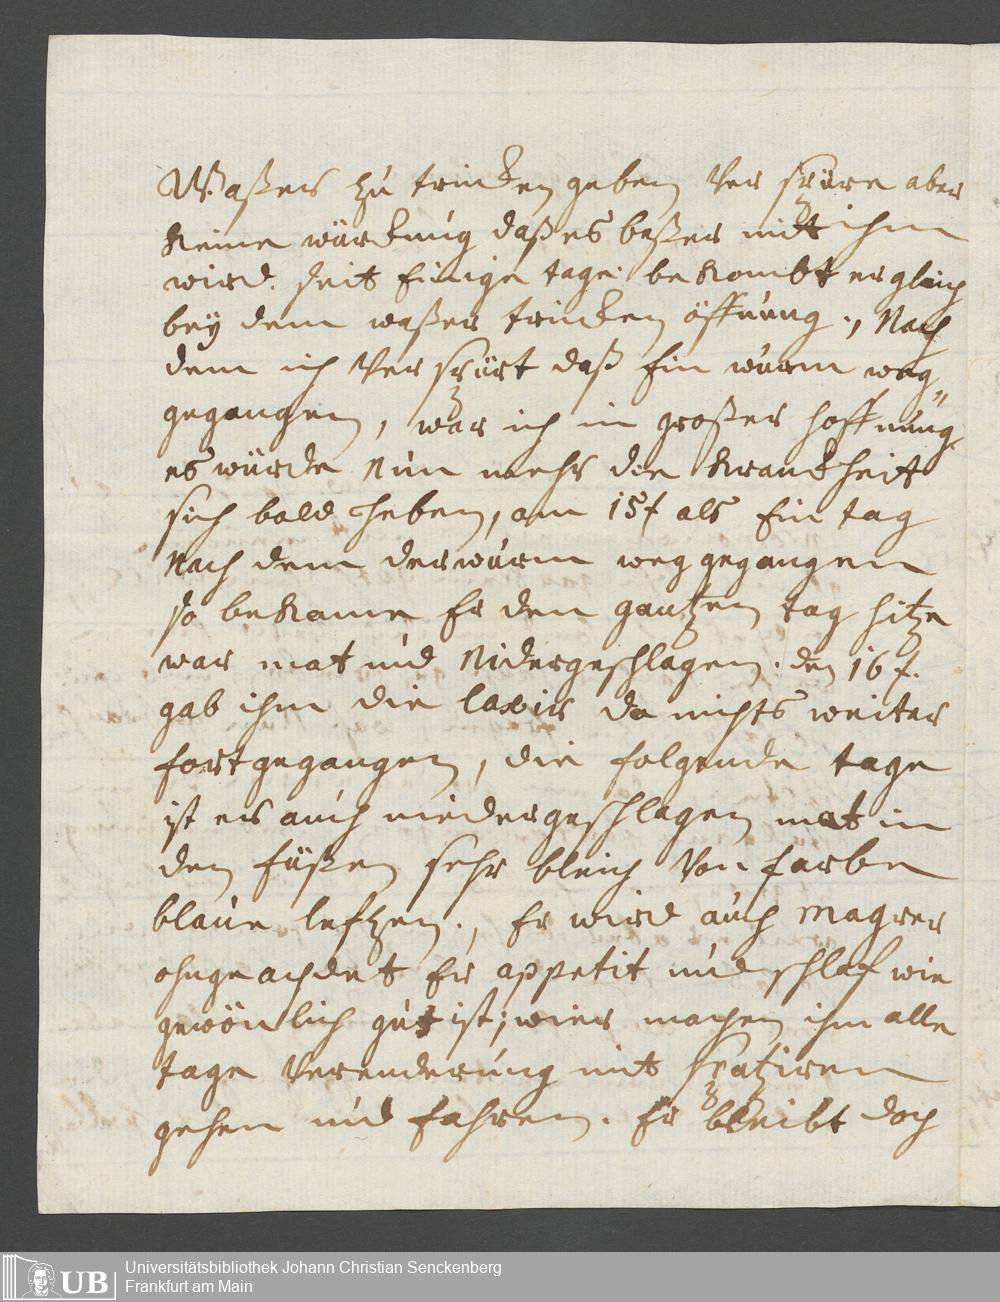 Waßers zu trincken geben Ver spüre aber
Keine würckung daß es beßer mit ihm
wird. seit Einige tage bekombt er gleich
beÿ dem waßer trincken öffnung., Nach
dem ich Ver spürt daß Ein wurm weg„
gegangen, war ich in großer hoffnung
es würde Nun mehr die Kranckheit
sich bald heben, am 15t als Ein tag
Nach dem der wurm weg gegangen
so bekame Er den gantzen tag hitze
war mat und Nidergeschlagen. den 16t.
gab ihm die laxir da nichts weiter
fortgegangen, die folgende tage
ist er auch niedergeschlagen mat in
den füßen sehr bleich Von farbe
blaue lefzen., Er wird auch Magrer
ohngeachdet Er appetit und schlaf wie
gewönlich gut ist; wier machen ihm alle
tage Verenderung mit spatziren
gehen und fahren. Er bleibt doch
UB
Universitätsbibliothek Johann Christian Senckenberg
Frankfurt am Main